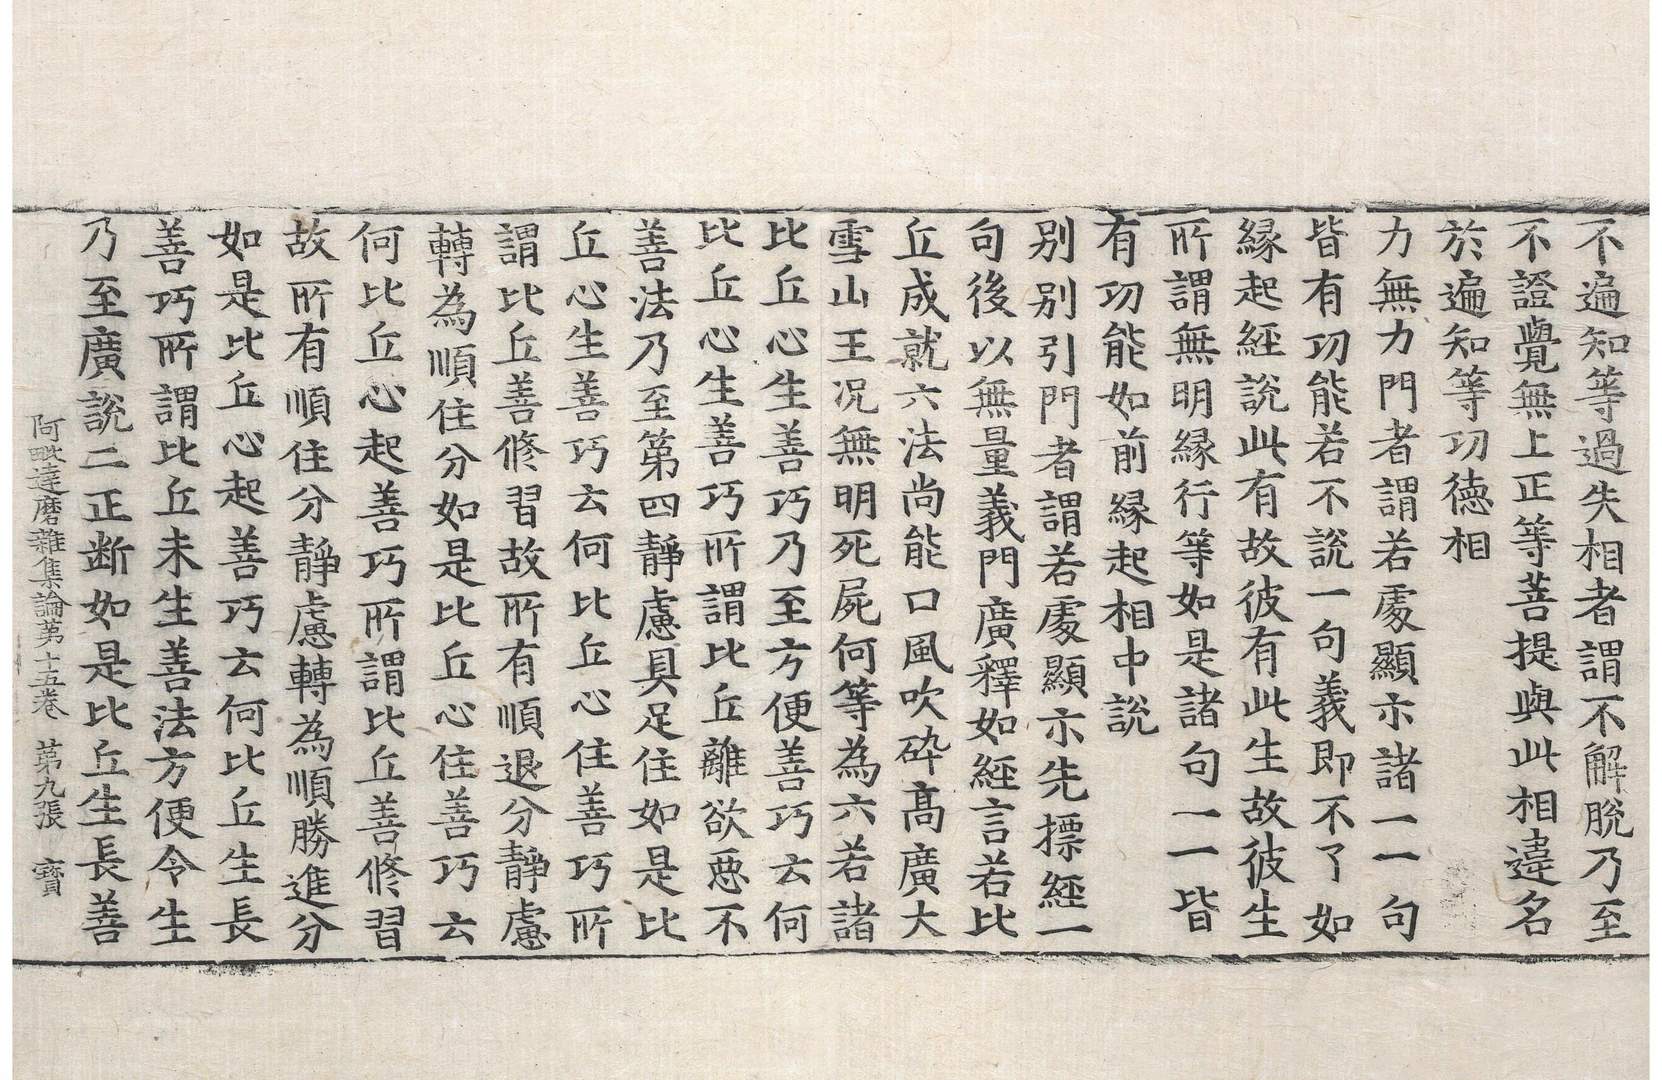 不遍知等過失相者謂不解脫乃至
不證覺無上正等菩提與此相違名
於遍知等功德相
力無力門者謂若處顯示諸一一句
皆有功能若不說一句義即不了如
緣起經說此有故彼有此生故彼生
所謂無明緣行等如是諸句一一皆
有功能如前緣起相中說
別別引門者謂若處顯示先摽經一
句後以無量義門廣釋如經言若比
丘成就六法尚能口風吹碎高廣大
雪山王况無明死屍何等為六若諸
比丘心生善巧乃至方便善巧云何
比丘心生善巧所謂比丘離欲惡不
善法乃至第四靜慮具足住如是比
丘心生善巧云何比丘心住善巧所
謂比丘善修習故所有順退分靜慮
轉為順住分如是比丘心住善巧云
何比丘心起善巧所謂比丘善修習
故所有順住分靜慮轉為順勝進分
如是比丘心起善巧云何比丘生長
善巧所謂比丘未生善法方便令生
乃至廣說二正断如是比丘生長善
阿毗達磨雜集論第十五卷 第九張 寳